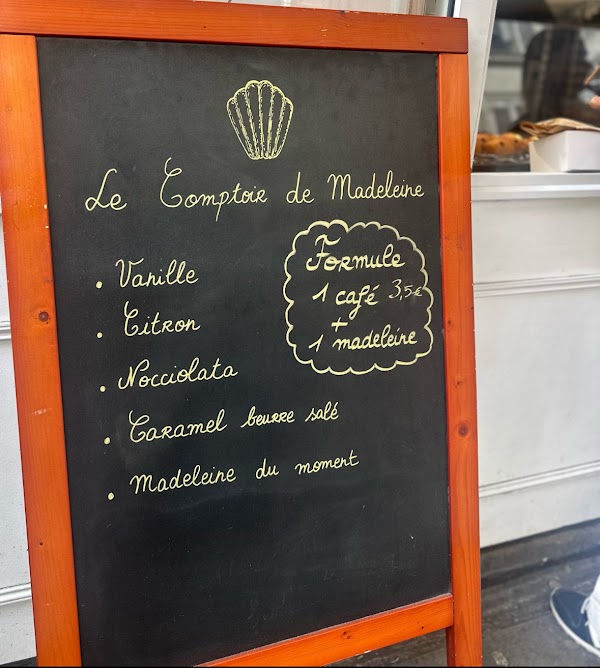 Le Comptoir de Madeleine
. Vanille
. Citron
. Nocciolata
. Caramel beurre salé
. Madeleine du moment
Formule
1 café 3,5€
+
1 madeleine